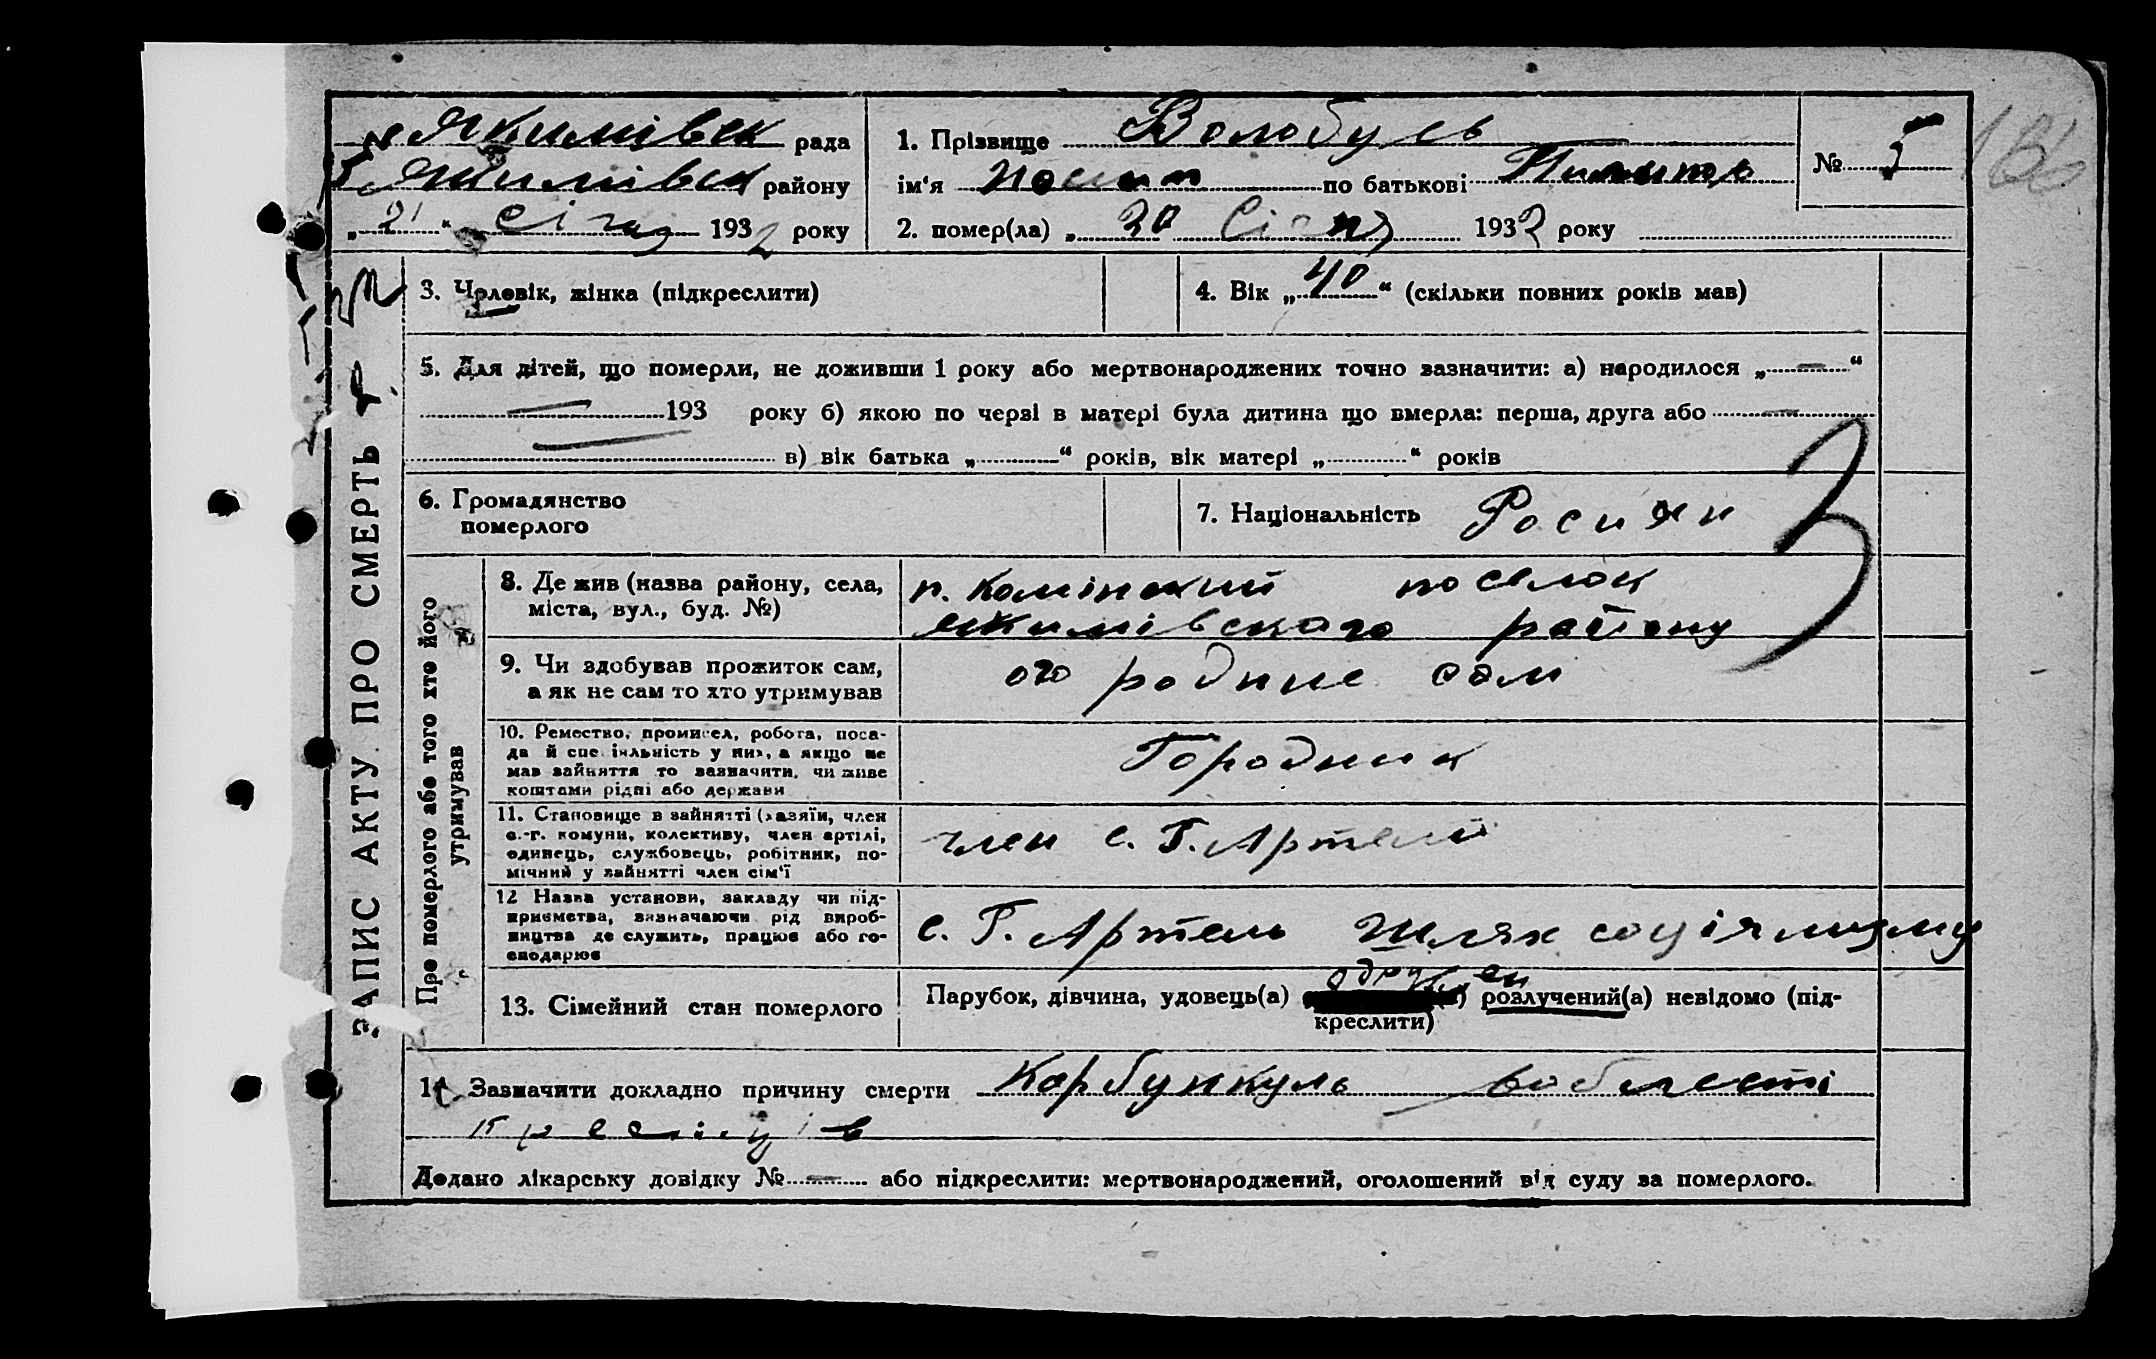 Якимівск рада
Якимівск району
„ 21 “ січня 1932 року
1. Прізвище Волобуєв
ім‘я Йосип по батькові
2. помер(ла) „ 20 Січня 1932 року
№ 5
186
ЗАПИС АКТУ ПРО СМЕРТЬ
3. Чоловік, жінка (підкреслити)
4. Вік „ 40 “ (скільки повних років мав)
5. Для дітей, що померли, не доживши 1 року або мертвонароджених точно зазначити: а) народилося „ — “
— 193 року б) якою по черві в матері була дитина що вмерла: перша, друга або —
— в) вік батька „ “ років, вік матері „ “ років
6. Громадянство
померлого
7. Національність Росиян
3
Про померлого або того хто його
утримував
8. Де жив (назва району, села,
міста, вул., буд. №)
п. поселок
якимівского району
9. Чи здобував прожиток сам,
а як не сам то хто утримував
родине сам
10. Ремество, промисел, робота, поса-
да й спеціяльність у них, а якщо не
мав зайняття то зазначити, чи живе
коштами рідні або держави
Городник
11. Становище в зайнятті (хазяїн, член
с.-г. комуни, колективу, член артілі,
одинець, службовець, робітник, по-
мічний у зайнятті член сім‘ї
член с. Г. Артелі
12 Назва установи, закладу чи під-
приємства, зазначаючи рід вироб-
ництва де служить, працює або го-
сподарює
с. Г. Артель Шлях соціялизму
13. Сімейний стан померлого
Парубок, дівчина, удовець(а) одружен розлучений(а) невідомо (під-
креслити)
14. Зазначити докладно причину смерти Карбункуль вобласті
Додано лікарську довідку № — або підкреслити: мертвонароджений, оголошений від суду за померлого.